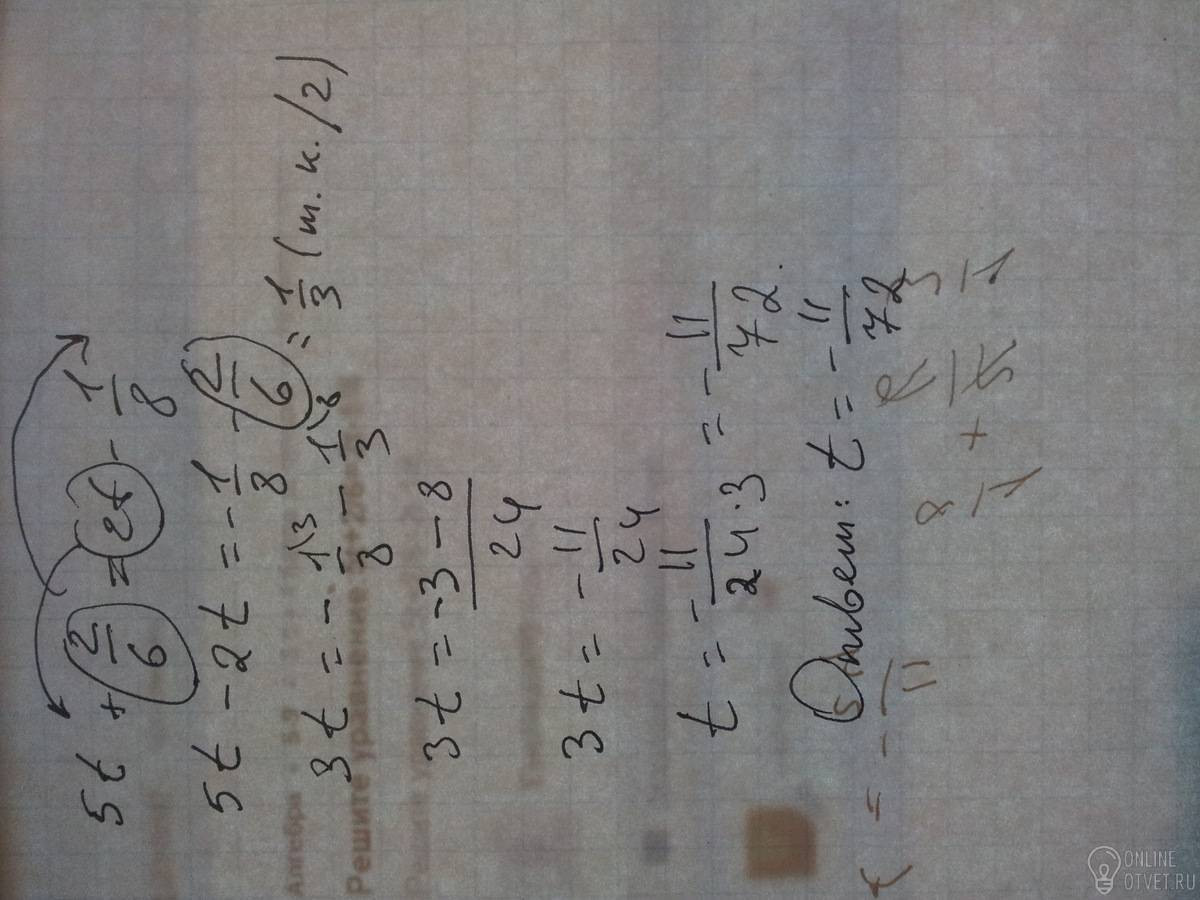 5t + 2/6 = 2t - 1/8
5t - 2t = - 1/8 - 2/6 = 1/3 (т.к. /2)
3t = - 1/8 \3 - 1/3 \8
3t = -3-8/24
3t = - 11/24
t = - 11/24·3 = - 11/72.
Ответ: t = - 11/72
Алгебра
Решите уравнение
ONLINE
OTVET.RU